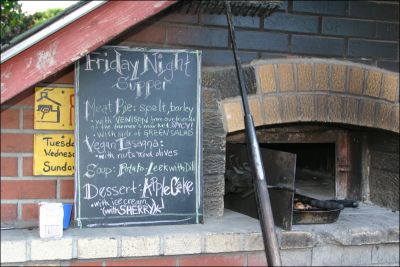 Friday Night
Supper
Meat Pie: spelt, barley
with VENISON from our friends
at the farmer's market. SPICY!
with side of GREEN SALAD
Vegan Lasagna:
with nuts and olives
Soup: Potato-Leek with Dill
Dessert: Apple Cake
with ice cream
(with SHERRY)
Tuesday
Wednesday
Sunday